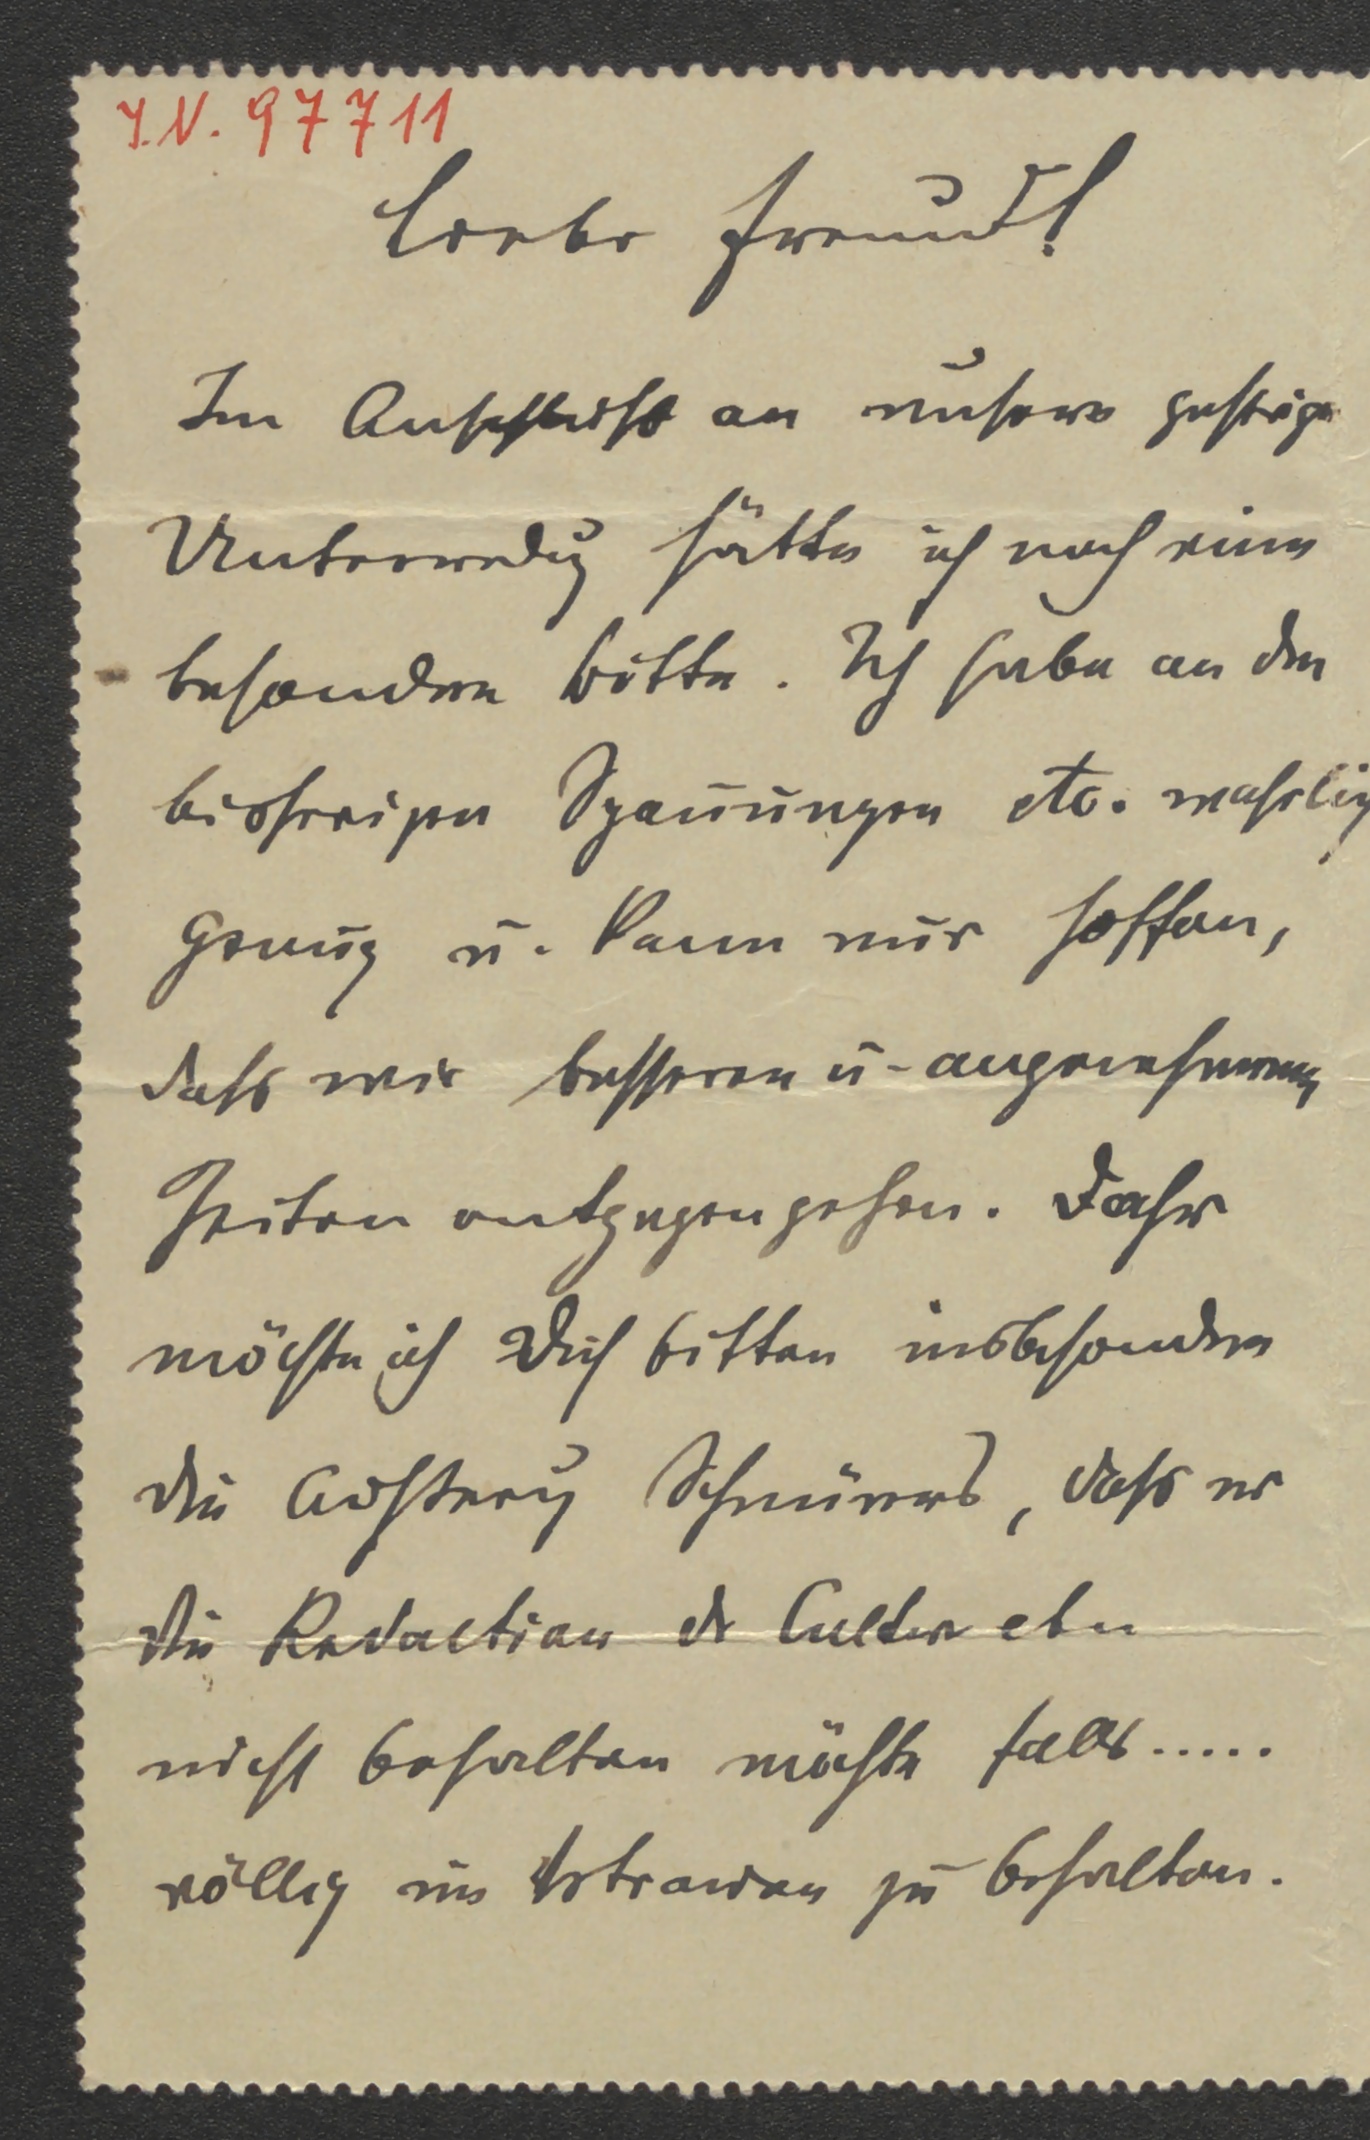 I.N. 97711
Lieber Freund!
Im Anschluss an unsere gestrige
Unterredung hätte ich noch eine
besondere Bitte. Ich habe an den
bisherigen Spannungen etc. wahrlich
genug u. kann nur hoffen,
dass wir besseren u. angenehmeren
Zeiten entgegengehen. Daher
möchte ich Dich bitten insbesondere
die Schnürers, dass er
die Redaction der Cultur eben
nicht behalten möchte falls.....
völlig im Vertrauen zu behalten.